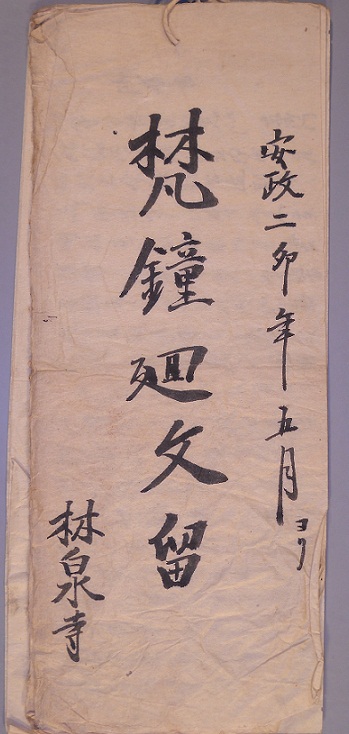 安政二卯年五月ヨリ
梵鐘廻文留
林泉寺